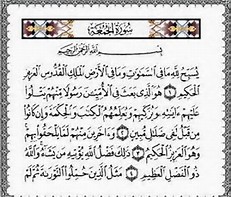 سُورَةُ الجُمُعَةِ
بِسْمِ اللَّهِ الرَّحْمَٰنِ الرَّحِيمِ
يُسَبِّحُ لِلَّهِ مَا فِي السَّمَٰوَٰتِ وَمَا فِي الْأَرْضِ الْمَلِكِ الْقُدُّوسِ الْعَزِيزِ
الْحَكِيمِ ١ هُوَ الَّذِي بَعَثَ فِي الْأُمِّيِّينَ رَسُولًا مِّنْهُمْ يَتْلُوا
عَلَيْهِمْ ءَايَٰتِهِ وَيُزَكِّيهِمْ وَيُعَلِّمُهُمُ الْكِتَٰبَ وَالْحِكْمَةَ وَإِن كَانُوا
مِن قَبْلُ لَفِي ضَلَٰلٍ مُّبِينٍ ٢ وَءَاخَرِينَ مِنْهُمْ لَمَّا يَلْحَقُوا بِهِمْ
وَهُوَ الْعَزِيزُ الْحَكِيمُ ٣ ذَٰلِكَ فَضْلُ اللَّهِ يُؤْتِيهِ مَن يَشَاءُ وَاللَّهُ
ذُو الْفَضْلِ الْعَظِيمِ ٤ مَثَلُ الَّذِينَ حُمِّلُوا التَّوْرَىٰةَ ثُمَّ لَمْ